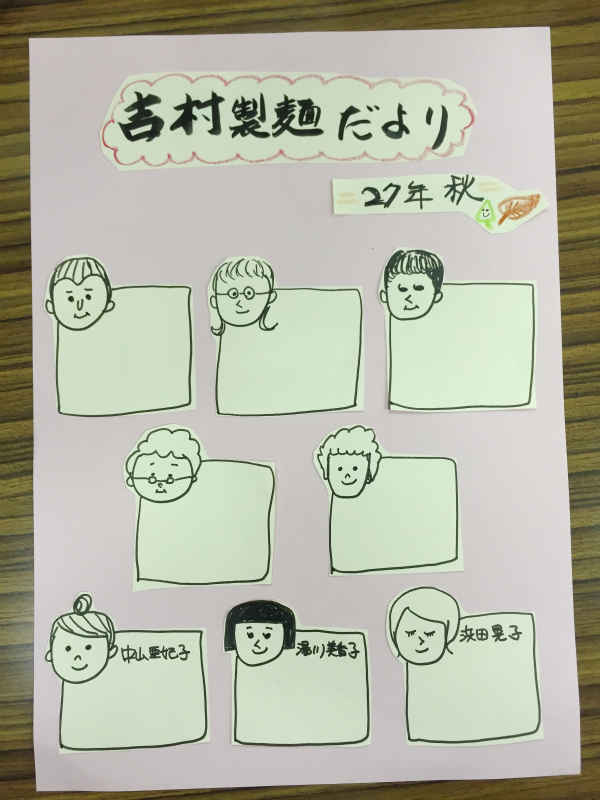 吉村製麺だより
27年 秋
中山亜妃子
湯川美香子
浜田晃子